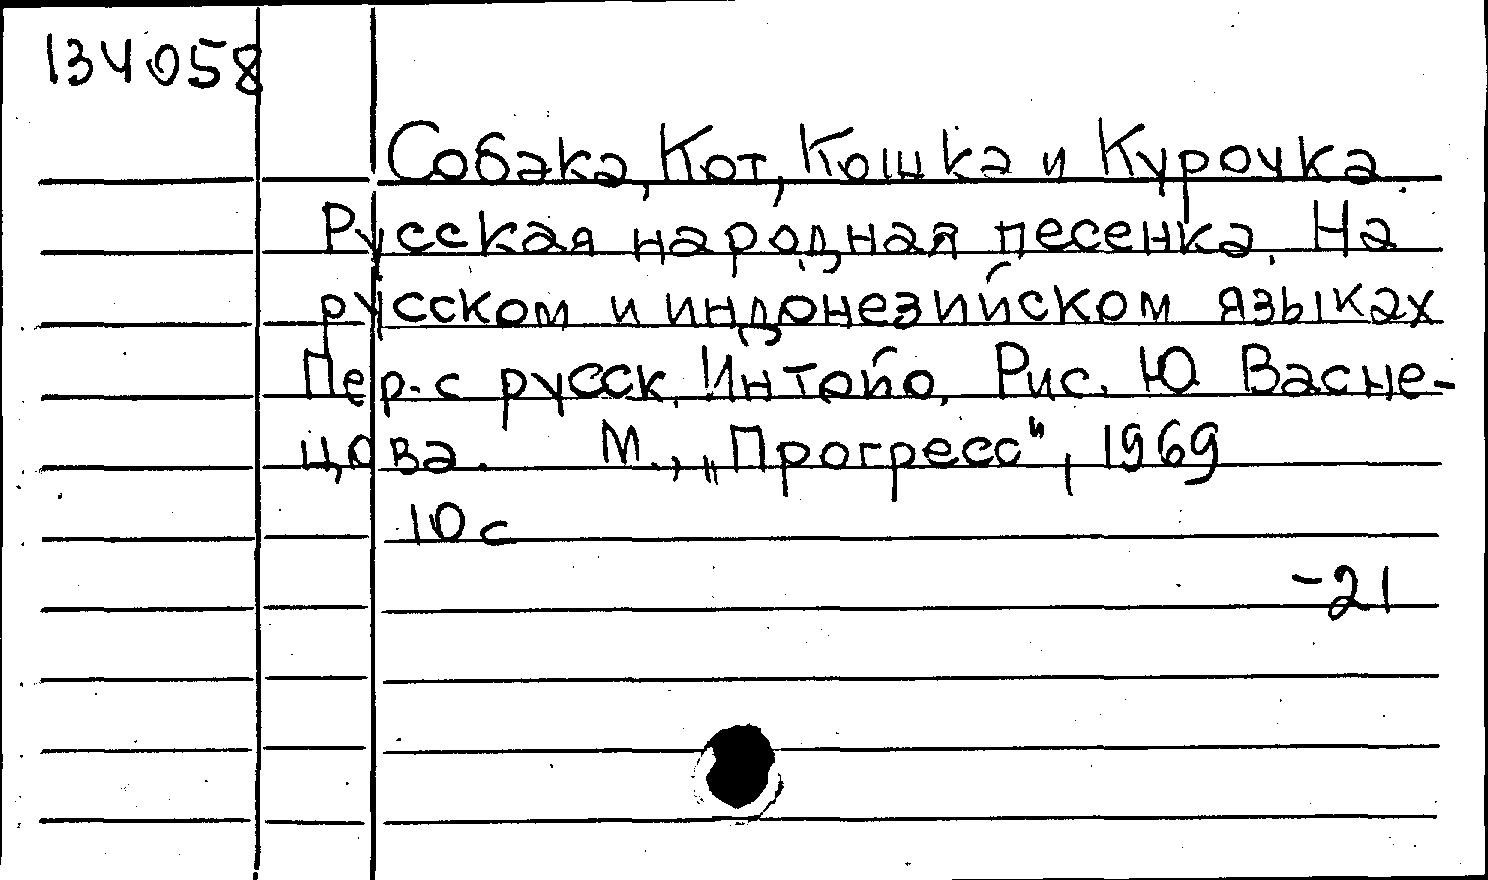 134058
Собака, Кот, Кошка и Курочка.
Русская народная песенка. На
русском и индонезийском языках
Пер. с русск. Интойо. Рис. Ю Васне-
цова. М., „Прогресс", 1969
10 с
-21